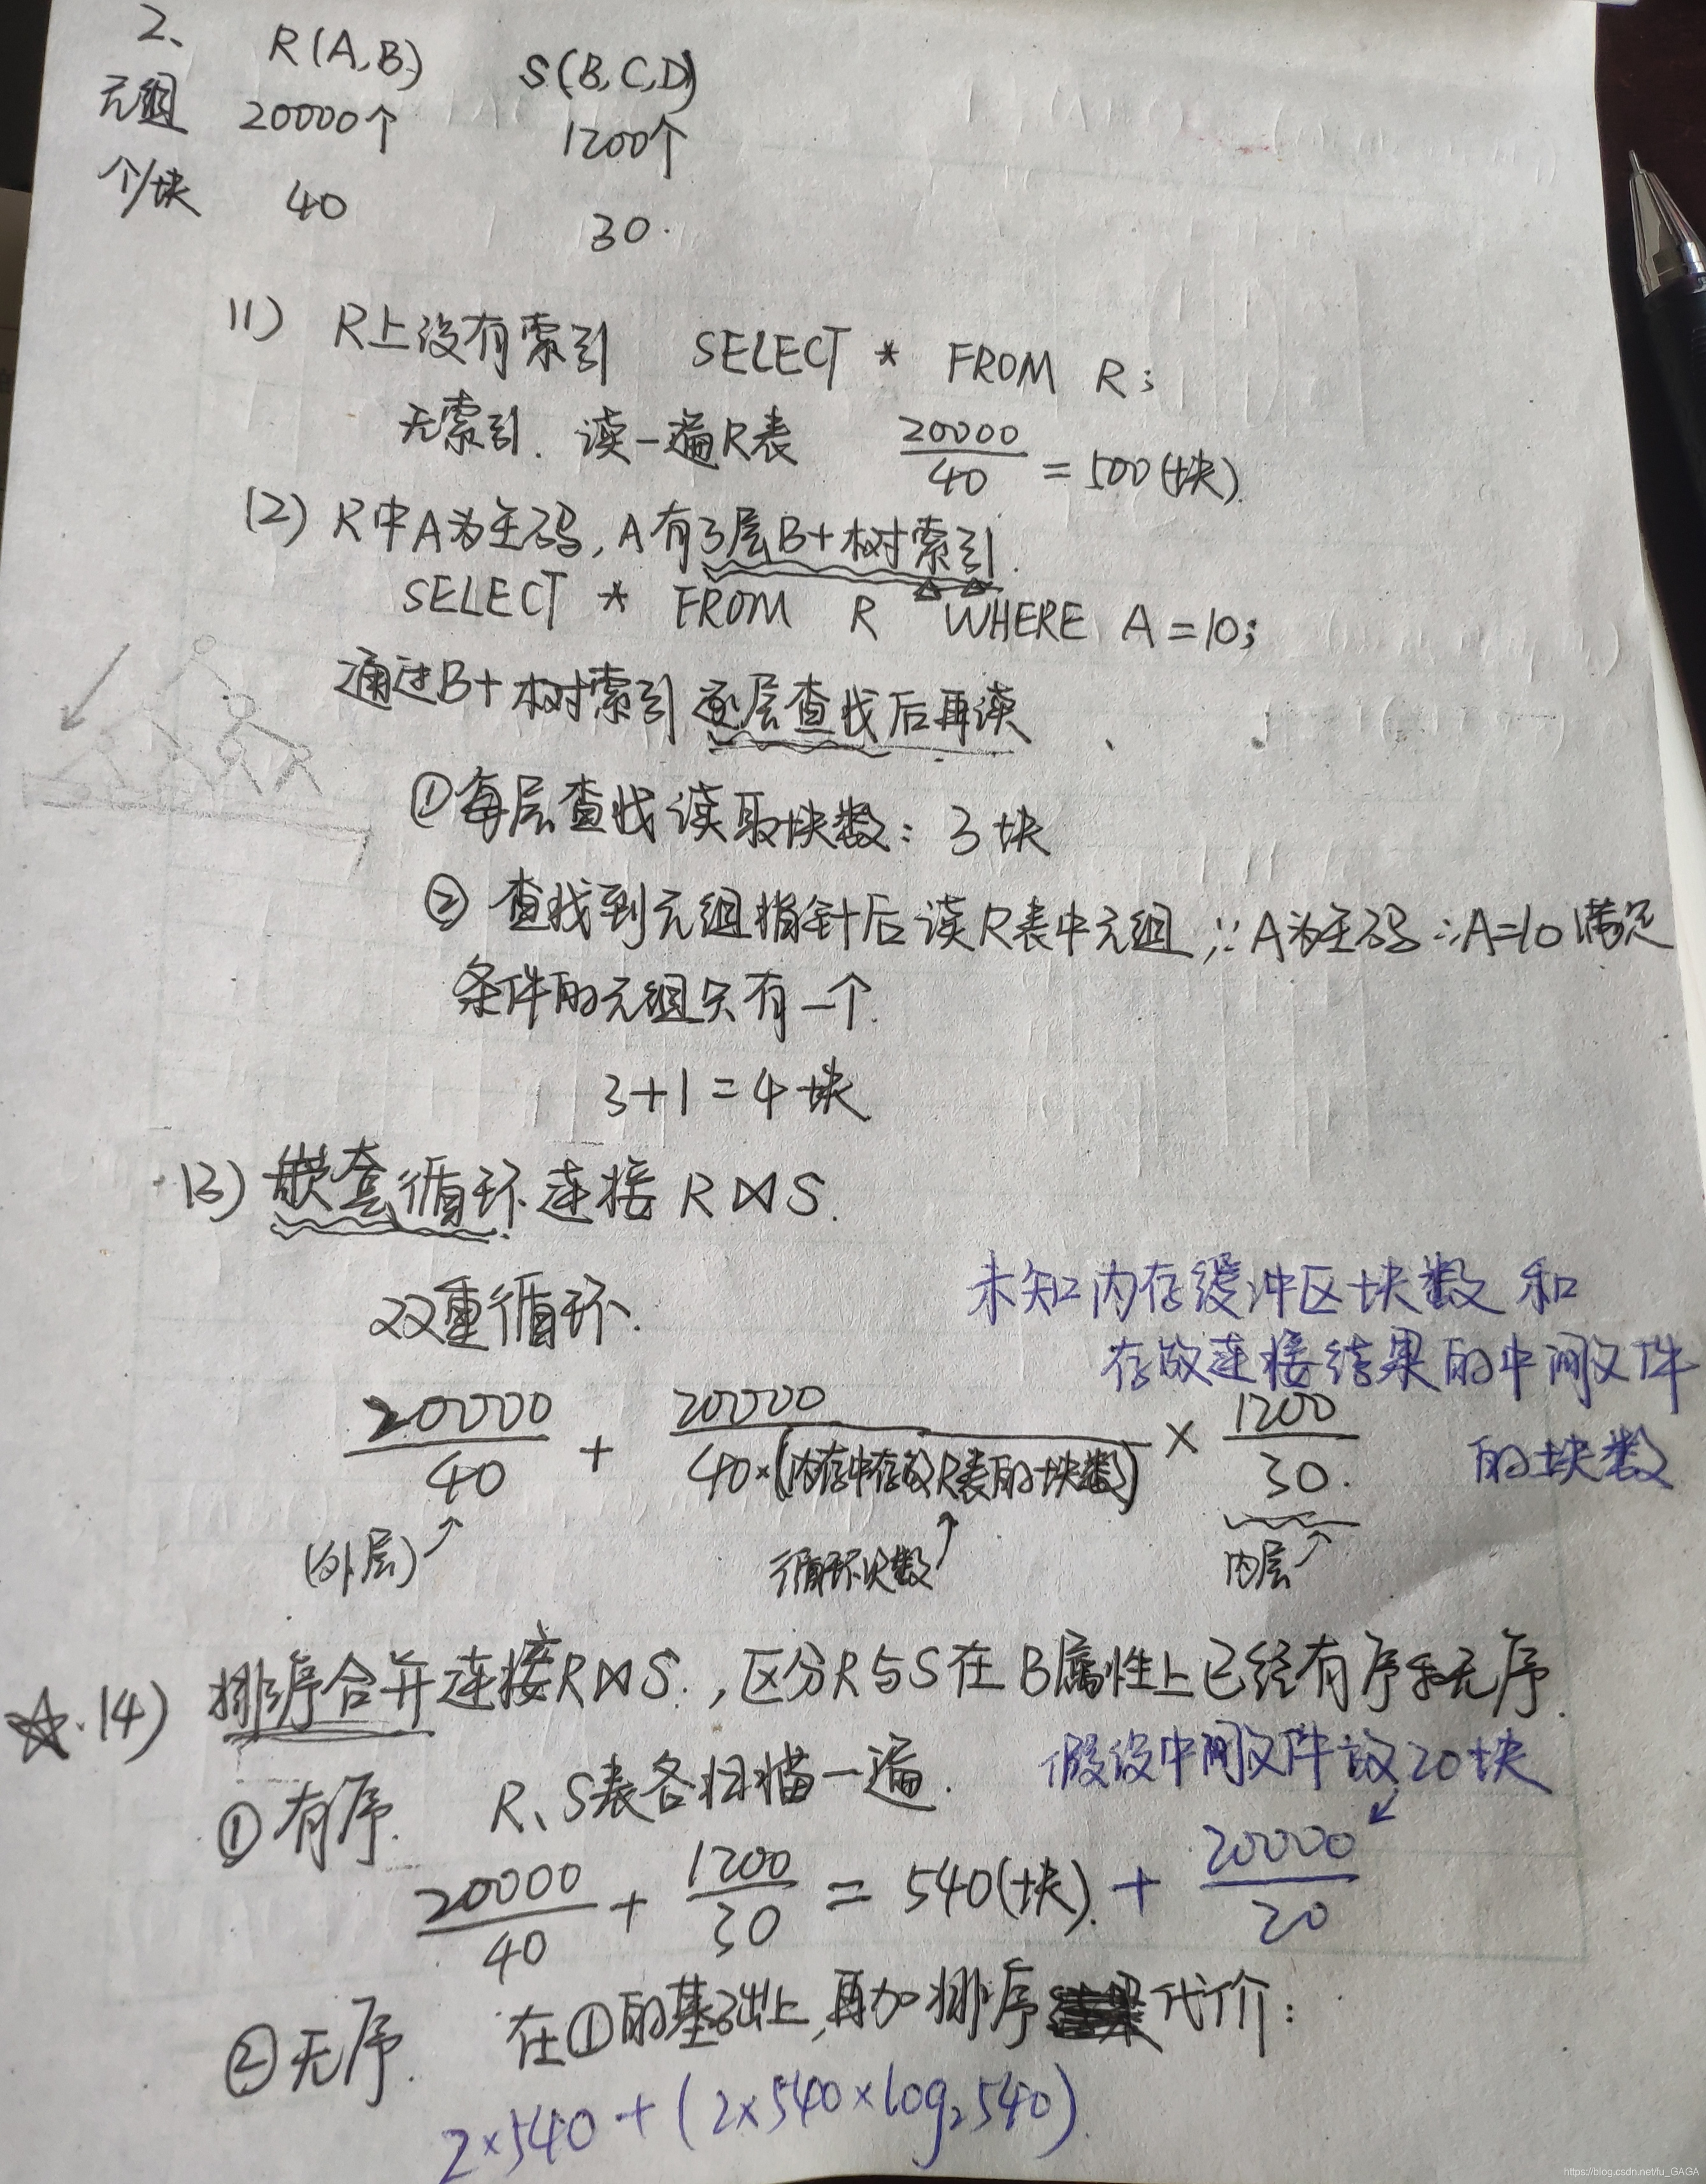 2、 R(A,B) S(B,C,D)
元组 20000个 1200个
个/块 40 30.
(1) R上没有索引 SELECT * FROM R;
无索引. 读一遍R表 20000/40 = 500(块).
(2) R中A为主码, A有3层B+树索引.
SELECT * FROM R WHERE A=10;
通过B+树索引逐层查找后再读
①每层查找读取块数: 3块
② 查找到元组指针后读R表中元组, ∵A为主码∴A=10满足
条件的元组只有一个.
3+1=4块
(3) 嵌套循环连接 R⋈S.
双重循环.
未知内存缓冲区块数和
存放连接结果的中间文件
的块数
20000/40 + 20000/40×(内存中存放R表的块数) × 1200/30.
(外层)↗ 循环次数↗ 内层↗
☆.(4) 排序合并连接R⋈S., 区分R与S在B属性上已经有序和无序.
①有序. R、S表各扫描一遍. 假设中间文件放20块
20000/40 + 1200/30 = 540(块). + 20000/20
②无序. 在①的基础上,再加排序代价:
2×540+(2×540×log₂540).
https://blog.csdn.net/lu_GAGA